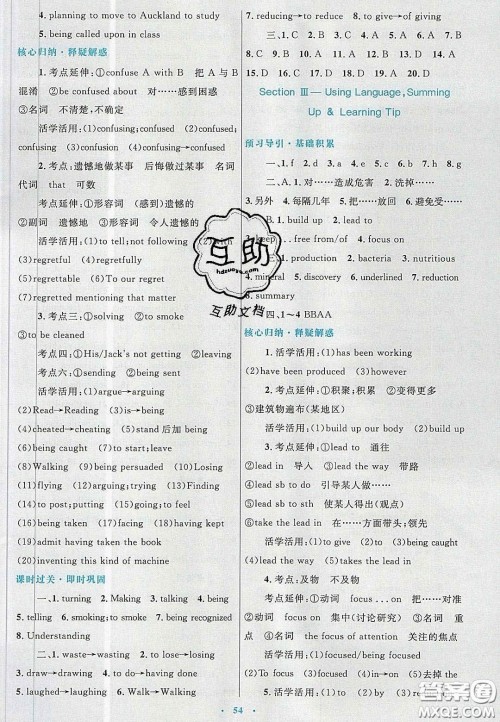 4. planning to move to Auckland to study
5. being called upon in class
核心归纳·释疑解惑
1. 考点延伸:①confuse A with B 把 A 与 B
混淆 ②be confused about 对……感到困惑
③名词 不清楚,不确定
活学活用:(1)confusing;confused (2)confused;
confusing (3)confusion;confused
2. 考点:遗憾地做某事 后悔做过某事 名词
代词 that 可数
考点延伸:①形容词 (感到)遗憾的
②副词 遗憾地 ③形容词 令人遗憾的
活学活用:(1)to tell;not following (2)with
(3)regretful (4)regretfully
(5)regrettable (6)To our regret
(7)regretted mentioning that matter
3. 考点三:①solving ②to smoke
③to be cleaned
考点四:①His/Jack's not getting ②leaving
考点六:①sending ②being sent
活学活用:(1)argue→arguing
(2)Read→Reading (3)is→being
(4)cheated→cheating (5)stand 后加 being
(6)being caught (7)to start;leave
(8)Walking (9)being persuaded (10)Losing
(11)flying (12)arguing (13)Finding
(14)to put→to putting (15)going;to feel
(16)being taken (17)facing (18)having kept
(19)admit having taken the book
(20)inventing this kind of machine
课时过关·即时巩固
一、1. turning 2. Making 3. talking 4. being
5. telling 6. smoking;to smoke 7. being recognized
8. Understanding
二、1. waste→wasting 2. leave→to leave
3. draw→drawing 4. to do→having done
5. laughed→laughing 6. Walk→Walking
7. reducing→to reduce 8. to give→of giving
三、1. C 2. A 3. B 4. B 5. B 6. C 7. D
8. C 9. D 10. A 11. B 12. D 13. A 14. B
15. D 16. C 17. C 18. A 19. A 20. D
Section Ⅲ — Using Language,Summing
Up & Learning Tip
预习导引·基础积累
一、1. f 2. d 3. a 4. e 5. c 6. b 7. h 8. g
二、A. 1. 对……造成危害 2. 洗掉……
3. 另外 4. 每隔几年 5. 把……放回 6. 避免受……
B. 1. build up 2. lead to
3. keep . . . free from/of 4. focus on
三、1. production 2. bacteria 3. nutritious
4. mineral 5. discovery 6. underlined 7. reduction
8. summary
四、1~4 BBAA
核心归纳·释疑解惑
1. 活学活用:(1)has been working
(2)have been produced
2. 考点延伸:①积聚;积累 ②变得更多
③建筑物遍布(某地区)
活学活用:(1)build up our body (2)build up
3. 考点延伸:①lead to 通往
②lead in 导入 ③lead the way 带路
④lead sb to do 引导某人做……
⑤lead sb to sth 使某人得出(观点)
⑥take the lead in 在……方面带头;领先
活学活用:(1)to give (2)to being caught
(3)to (4)lead to (5)take the lead in
4. 考点:及物 不及物
考点延伸:①动词 focus . . . on 把……对准
②动词 focus on 集中(讨论研究) ③名词 重
点 ④名词 the focus of attention 关注的焦点
活学活用:(1)focused/being focused
(2)To focus (3)focused (5)去掉第一个